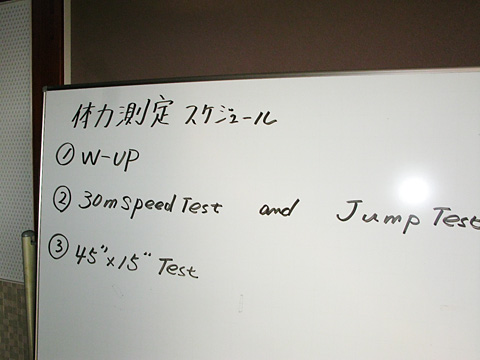 体力測定 スケジュール
① W-UP
② 30m Speed Test and Jump Test
③ 45"×15" Test